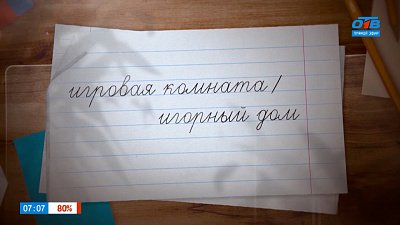 ОТВ
ПРЯМОЙ ЭФИР
игровая комната /
игорный дом
07:07 80%